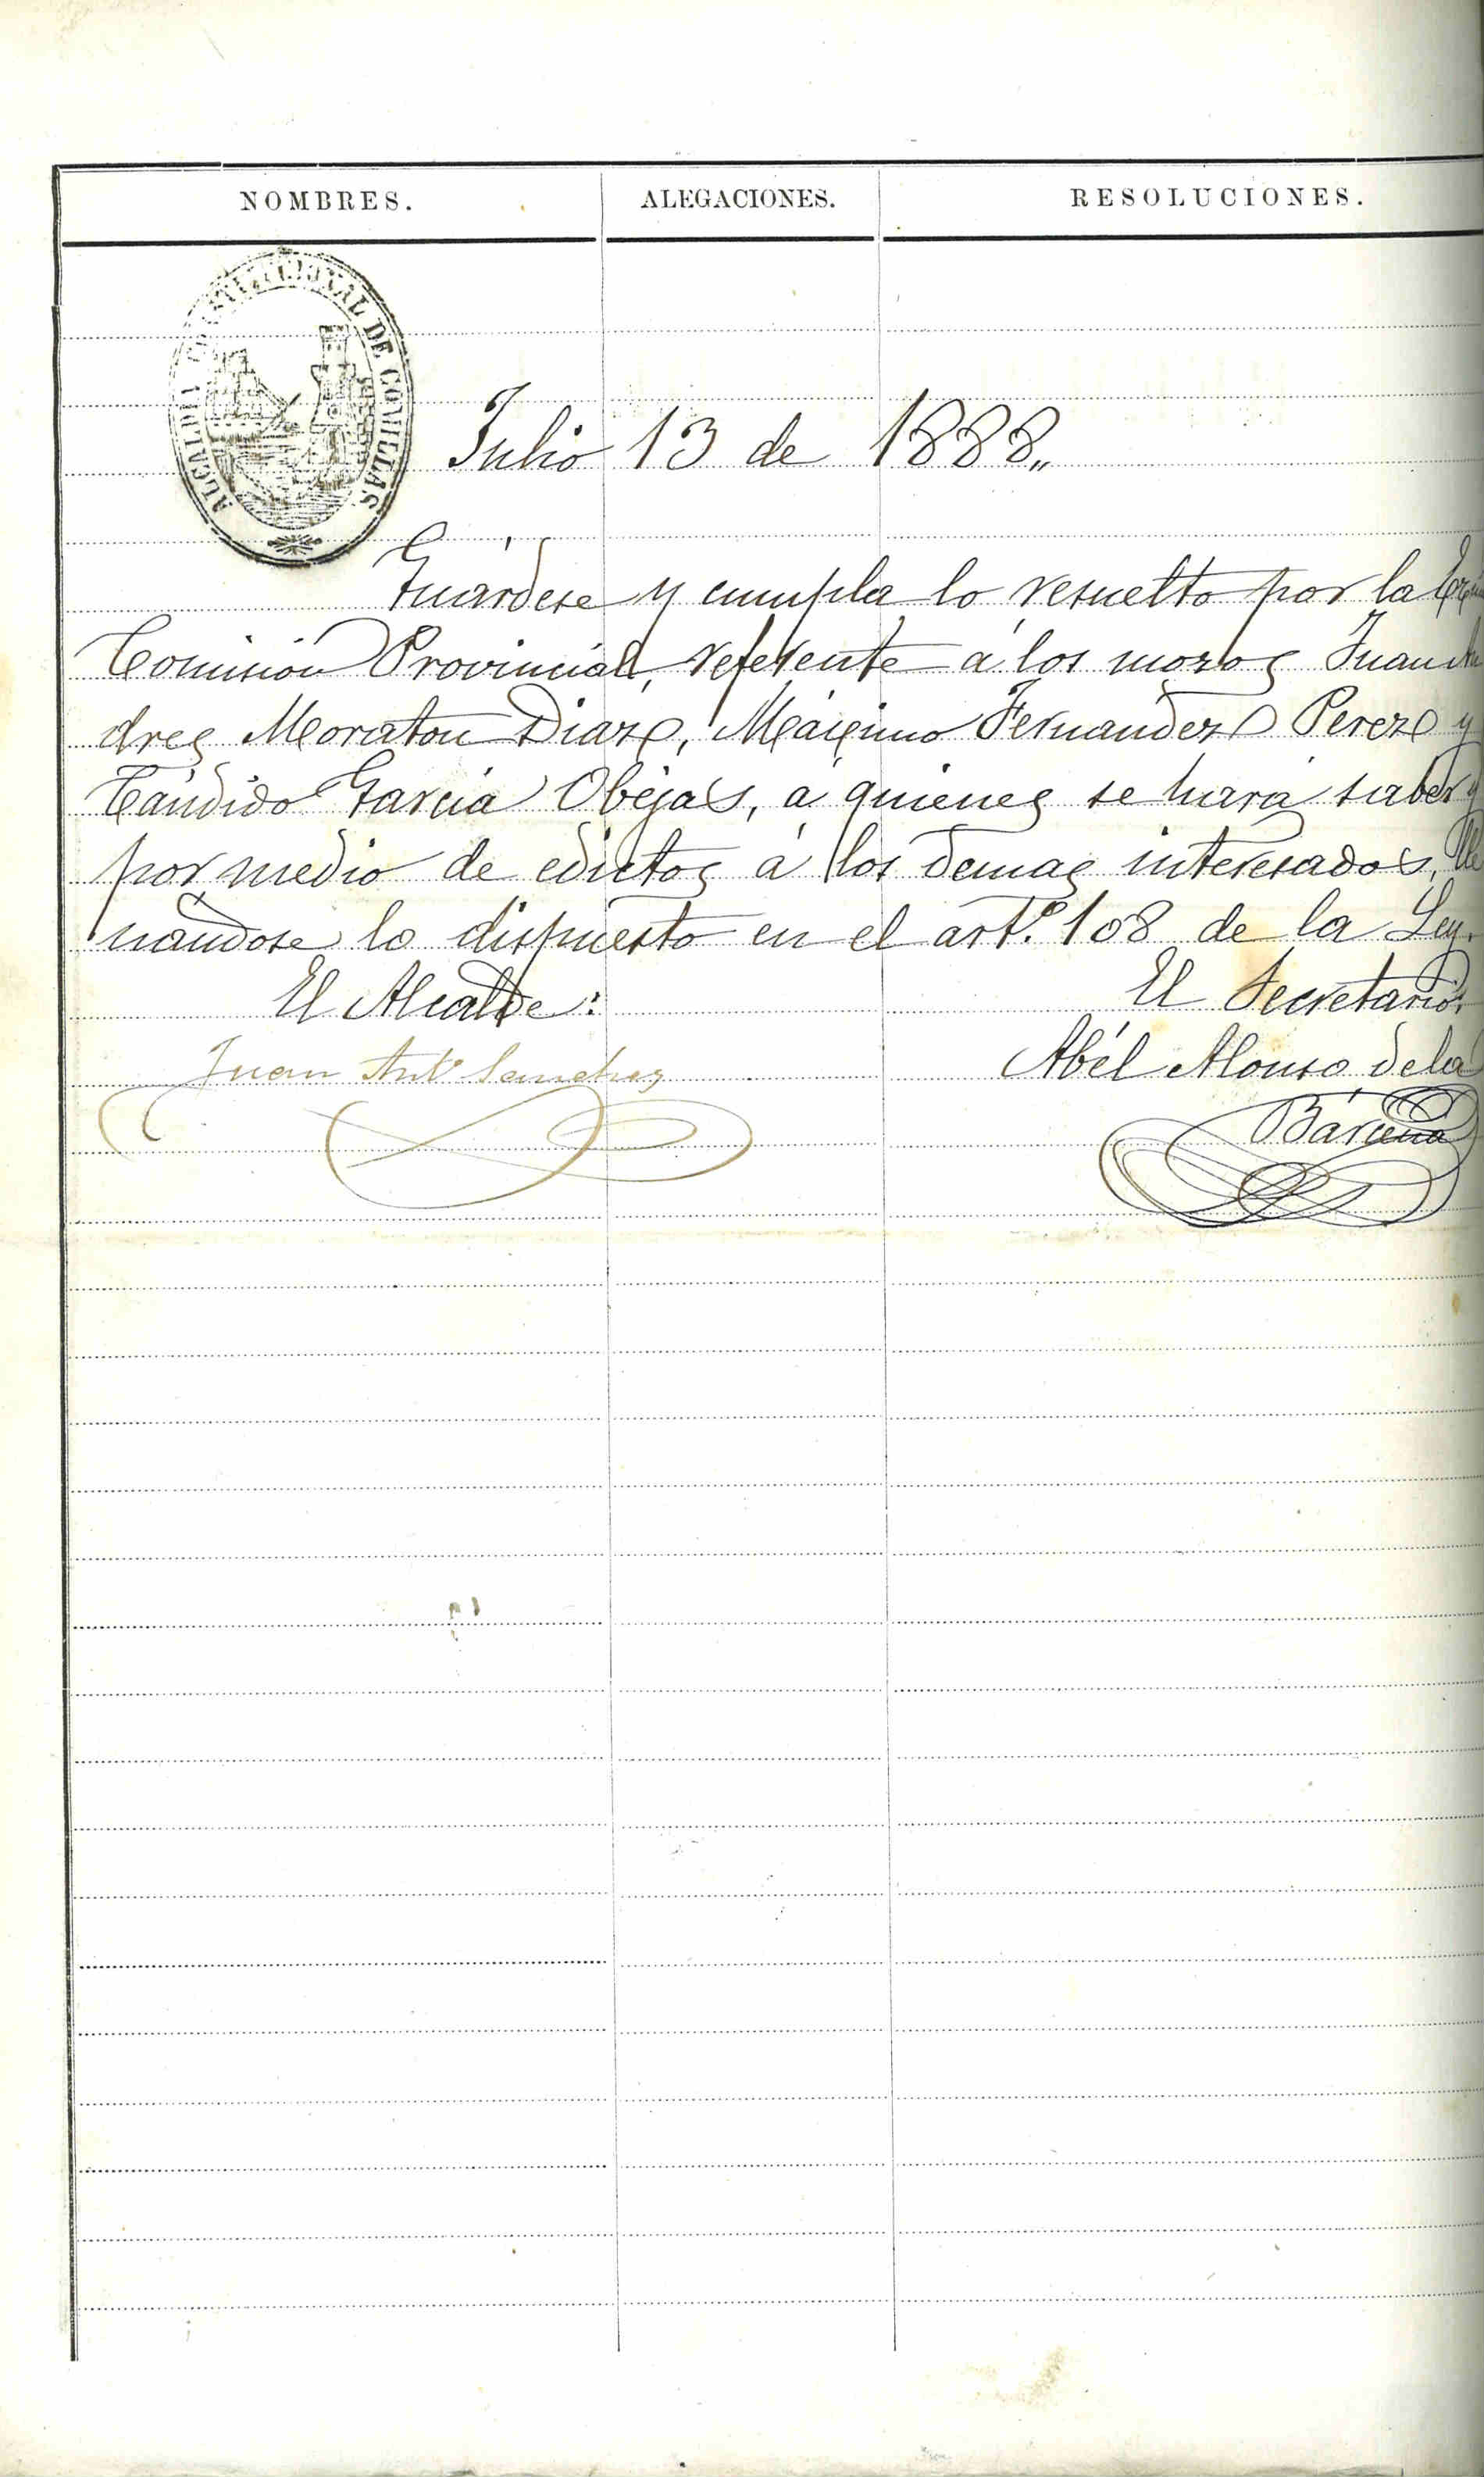 NOMBRES. ALEGACIONES. RESOLUCIONES.
ALCALDIA CONSTITUCIONAL DE COMILLAS
Julio 13 de 1888.,
Guárdese y cumpla lo resuelto por la
Comisión Provincial, referente á los mozos Juan
dres Moraton Diaz, Máximo Fernandez Perez y
Cándido García Obejas, á quienes se hará saber y
por medio de edictos á los demas interesados,
nándose lo dispuesto en el artº. 108 de la Ley.
El Alcalde: El Secretario,
Juan Antº Sanchez Abél Alonso de la
Bárcena